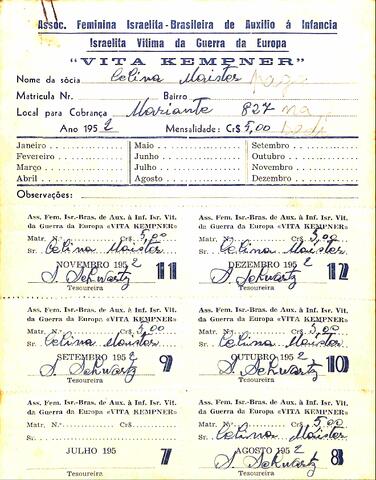 Assoc. Feminina Israelita-Brasileira de Auxilio á Infancia
Israelita Vitima da Guerra da Europa
"VITA KEMPNER"
Nome da sócia Celina Maister
Matricula Nr. Bairro
Local para Cobrança Mariante 827
Ano 1952 Mensalidade: Cr$ 5,00
Janeiro Maio Setembro
Fevereiro Junho Outubro
Março Julho Novembro
Abril Agosto Dezembro
Observações:
Ass. Fem. Isr.-Bras. de Aux. à Inf. Isr. Vit.
da Guerra da Europa «VITA KEMPNER»
Matr. N.º Cr$ 5,00
Sr. Celina Maister
NOVEMBRO 1952 11
S. Schwartz
Tesoureira
Ass. Fem. Isr.-Bras. de Aux. à Inf. Isr. Vit.
da Guerra da Europa «VITA KEMPNER»
Matr. N.º Cr$ 5,00
Sr. Celina Maister
DEZEMBRO 1952 12
S. Schwartz
Tesoureira
Ass. Fem. Isr.-Bras. de Aux. à Inf. Isr. Vit.
da Guerra da Europa «VITA KEMPNER»
Matr. N.º Cr$ 5,00
Sr. Celina Maister
SETEMBRO 1952 9
S. Schwartz
Tesoureira
Ass. Fem. Isr.-Bras. de Aux. à Inf. Isr. Vit.
da Guerra da Europa «VITA KEMPNER»
Matr. N.º Cr$ 5,00
Sr. Celina Maister
OUTUBRO 1952 10
S. Schwartz
Tesoureira
Ass. Fem. Isr.-Bras. de Aux. à Inf. Isr. Vit.
da Guerra da Europa «VITA KEMPNER»
Matr. N.º Cr$
Sr.
JULHO 195 7
Tesoureira
Ass. Fem. Isr.-Bras. de Aux. à Inf. Isr. Vit.
da Guerra da Europa «VITA KEMPNER»
Matr. N.º Cr$ 5,00
Sr. Celina Maister
AGOSTO 1952 8
S. Schwartz
Tesoureira